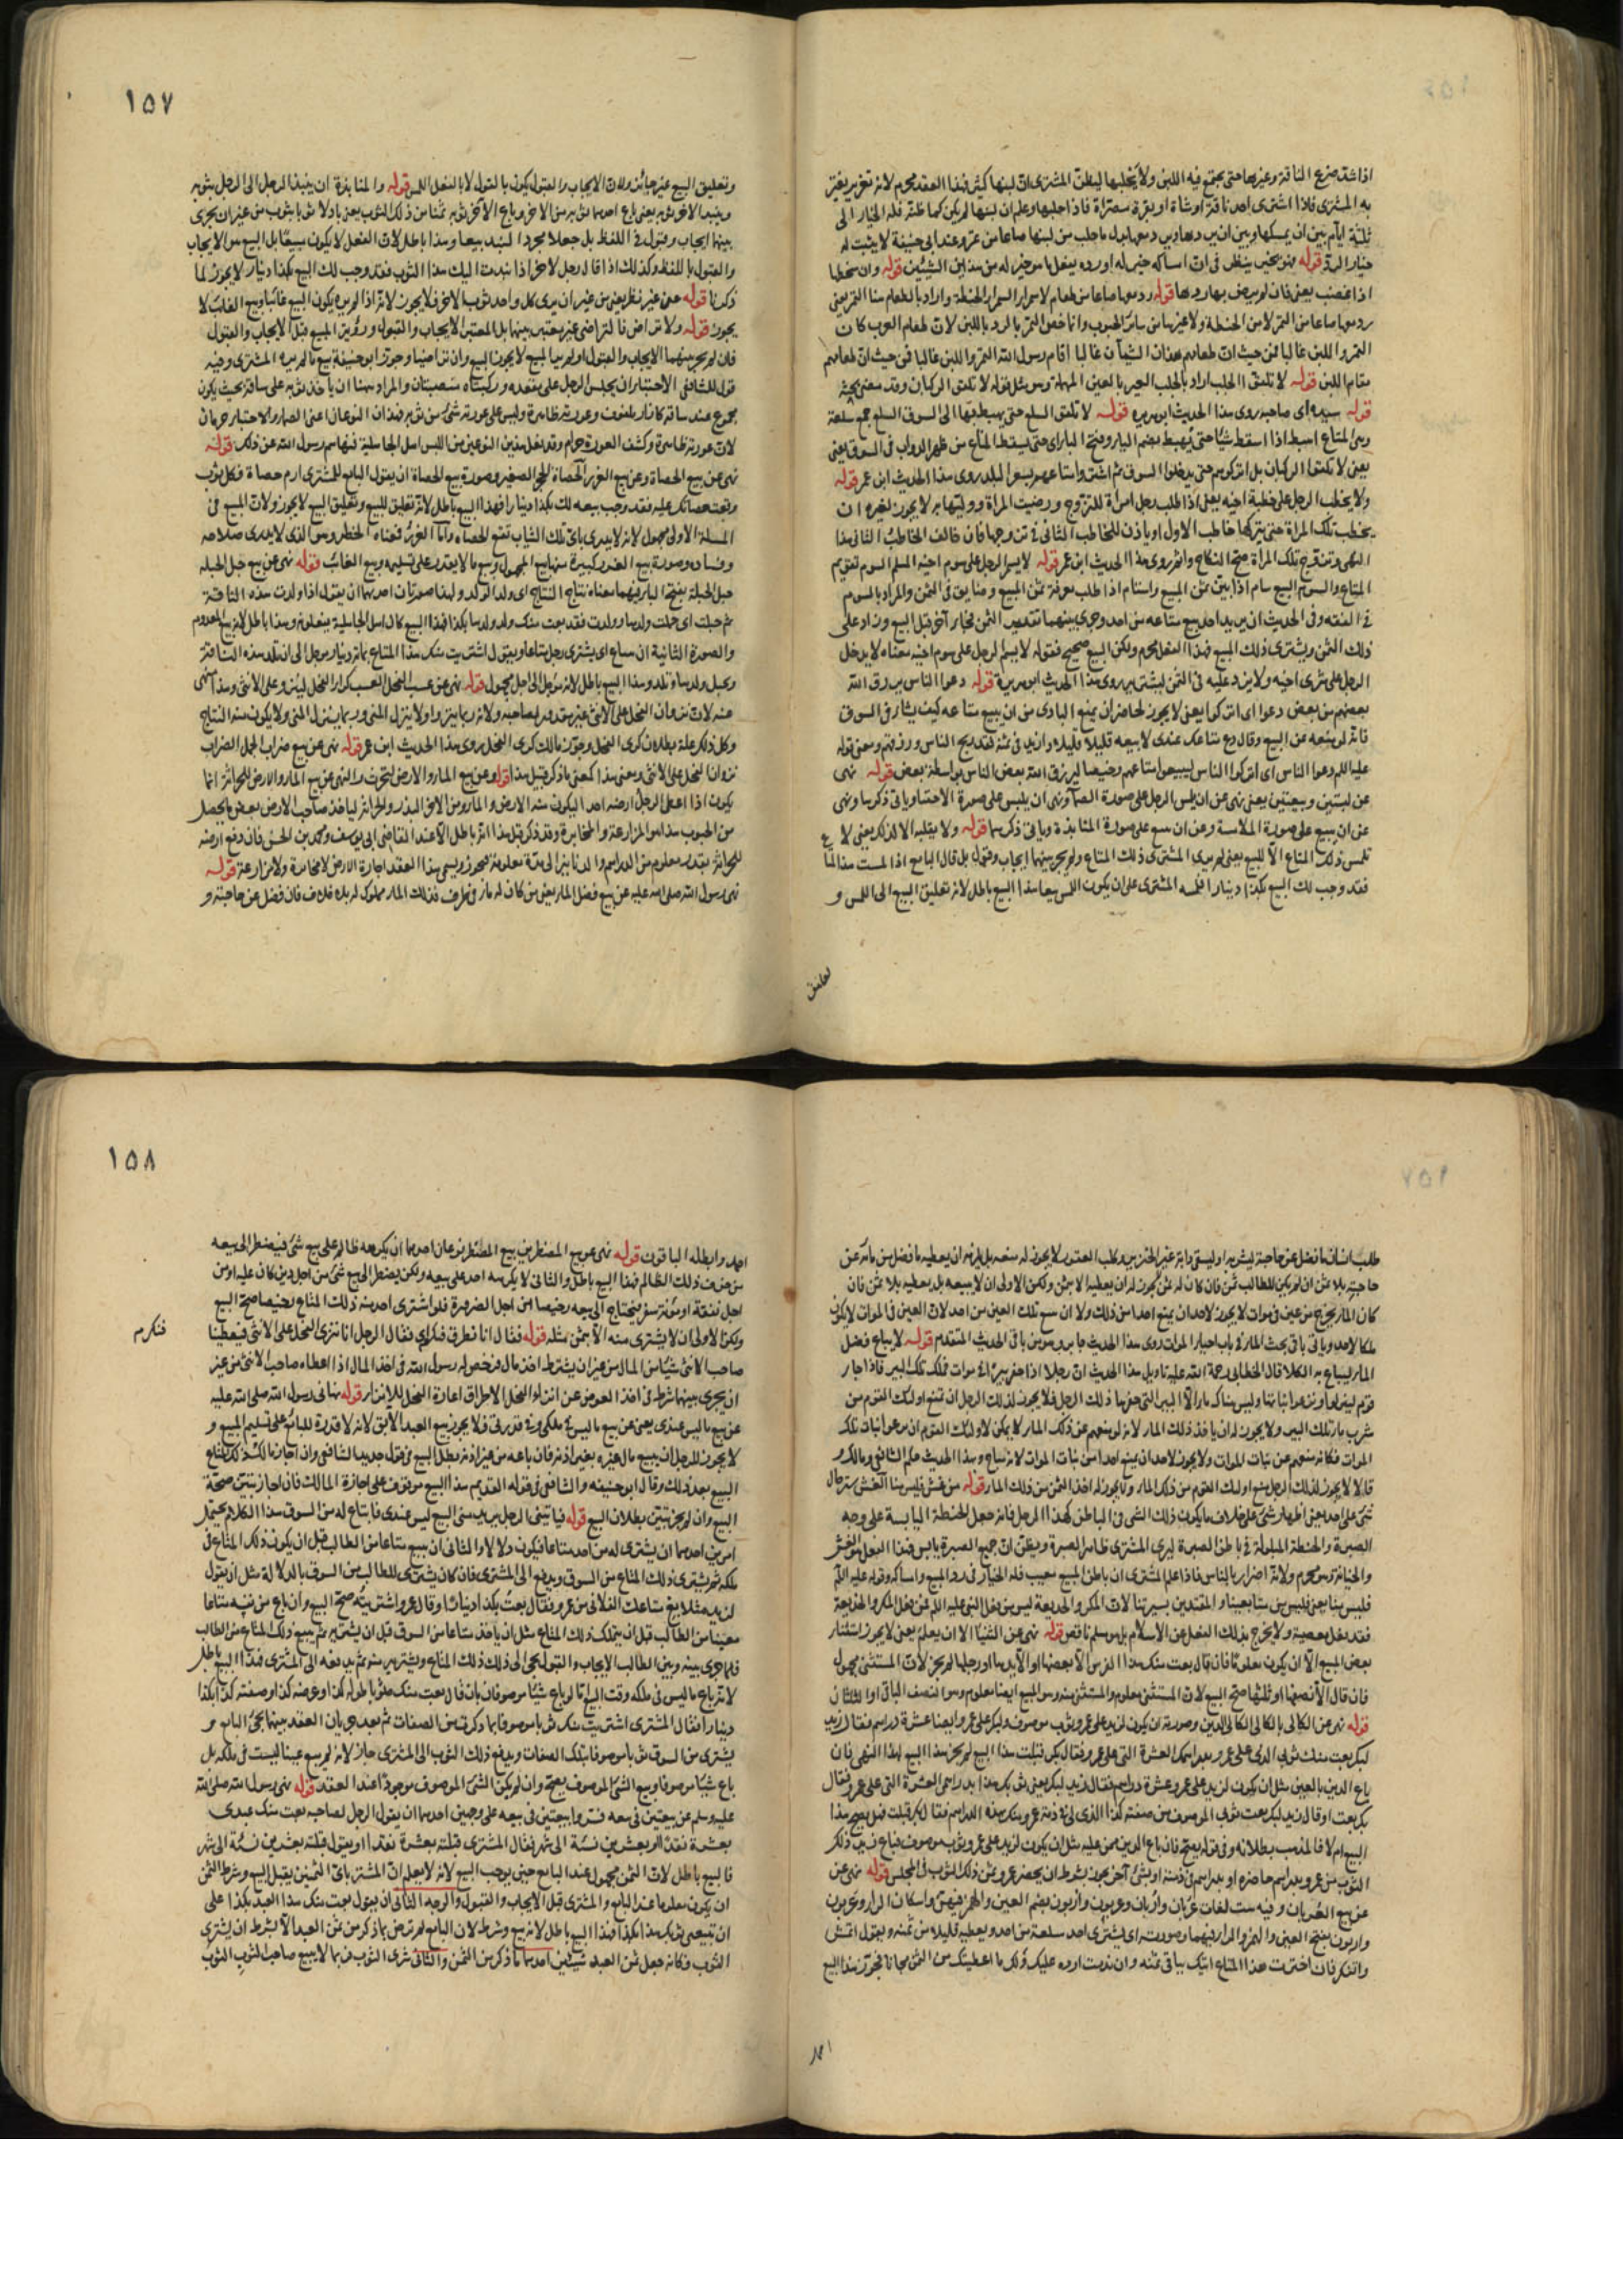 اذا شد ضرع الناقة وغيرها حتى يجتمع فيه اللبن ولا يحلبها ليظن المشترى ان لبنها كثير فهذا العقد محرم لانه تغرير يغتر
به المشترى فاذا اشترى احد ناقة او شاة او بقرة مصراة فاذا حلبها وعلم ان لبنها لم يكن كما ظنه فله الخيار الى
ثلثة ايام بين ان يمسكها وبين ان يردها ويرد معها بدل ما حلب من لبنها صاعا من تمر وعند ابى حنيفة لا يثبت له
خيار الرد قوله فهو بخير ينظر فى ان امساكه خير له او رده يفعل ما هو خير له من هذين الشيئين قوله وان سخطها
اذا غضب يعنى فان لم يرض بها ردها قوله رد معها صاعا من طعام لا سمراء السمراء الحنطة واراد بالطعام هنا التمر يعنى
رد معها صاعا من التمر لا من الحنطة ولا غيرها من سائر الحبوب وانما خص التمر بالرد باللبن لان طعام العرب كان
التمر واللبن غالبا فمن حيث ان طعامهم هذان الشيآن غالبا اقام رسول الله التمر واللبن غالبا فمن حيث ان طعامهم
مقام اللبن قوله لا تلقوا الجلب اراد بالجلب العير بالعين المهملة وهو مثل قوله لا تلقوا الركبان وقد مضى بحثه
قوله سيده اى صاحبه روى هذا الحديث ابو هريرة قوله لا تلقوا السلع حتى يهبط بها الى السوق السلع جمع سلعة
وهى المتاع اهبط اذا اسقط شيئا حتى يهبط بضم الياء وفتح الباء اى حتى يسقط المتاع من ظهر الدواب فى السوق يعنى
يعنى لا تلقوا الركبان بل اتركوهم حتى يدخلوا السوق ثم اشتروا متاعهم بسعر البلد روى هذا الحديث ابن عمر قوله
ولا يخطب الرجل على خطبة اخيه يعنى اذا طلب رجل امرأة للتزوج ورضيت المراة ووليها به لا يجوز لغيره ان
يخطب تلك المراة حتى يتركها خاطب الاول او ياذن للخاطب الثانى فى تزوجها فان خالف الخاطب الثانى هذا
النهى وتزوج تلك المراة صح النكاح واثم روى هذا الحديث ابن عمر قوله لا يسم الرجل على سوم اخيه المسلم السوم تقويم
المتاع والسوم البيع سام اذا بين ثمن المبيع واستام اذا طلب معرفة ثمن المبيع وضايق فى الثمن والمراد بالسوم
فى الفقه وفى الحديث ان يريد احد بيع متاعه من احد وجرى بينهما تقدير الثمن فجاء آخر قبل البيع وزاد على
ذلك الثمن ويشترى ذلك المبيع فهذا الفعل محرم ولكن البيع صحيح فقوله لا يسم الرجل على سوم اخيه معناه لا يدخل
الرجل على شرى اخيه ولا يزد عليه فى الثمن ليشتريه روى هذا الحديث ابو هريرة قوله دعوا الناس يرزق الله
بعضهم من بعض دعوا اى اتركوا يعنى لا يجوز لحاضر ان يمنع البادى من ان يبيع متاعه كيف يشاء فى السوق
فانه لو منعه عن البيع وقال دع متاعك عندى لابيعه قليلا قليلا وازيد فى ثمنه فقد يحرج الناس ورزقهم ومعنى قوله
عليه السلم دعوا الناس اى اتركوا الناس ليبيعوا متاعهم رخيصا ليرزق الله بعض الناس بواسطة بعض قوله نهى
عن لبستين وبيعتين يعنى نهى عن ان يلبس الرجل على صورة الصمآء ونهى ان يلبس على صورة الاحتباء وياتى ذكرهما ونهى
عن ان يبيع على صورة الملامسة وعن ان يبيع على صورة المنابذة وياتى ذكرهما قوله ولا يقلبه الا لذلك يعنى لا
تلمس ذلك المتاع الا للبيع يعنى لم يرد المشترى ذلك المتاع ولم يجر بينهما ايجاب وقبول بل قال البايع اذا لمست هذا المتاع
فقد وجب لك البيع بكذا دينار افلمسه المشترى على ان يكون اللمس بيعا هذا البيع باطل لانه تعليق البيع الى اللمس و
١٥٧
وتعليق البيع غير جائز ولان الايجاب والقبول يكون بالقول لا بالفعل اللمس قوله والمنابذة ان ينبذ الرجل الى الرجل بثوبه
وينبذ الاخر ثوبه يعنى باع احدهما ثوبه من الاخر وباع الاخر ثوبه ثمنا من ذلك الثوب يعنى بادلا ثوبا بثوب من غير ان يجرى
بينهما ايجاب وقبول فى اللفظ بل جعلا مجرد النبذ بيعا وهذا باطل لان الفعل لا يكون بيعا بل البيع هو الايجاب
والقبول باللفظ وكذلك اذا قال رجل لاخر اذا نبذت اليك هذا الثوب فقد وجب لك البيع بكذا دينار لا يجوز لما
ذكرنا قوله عن غير نظر يعنى من غير ان يرى كل واحد ثوب الاخر فلا يجوز لانه اذا لم يره يكون البيع غائبا وبيع الغائب لا
يجوز قوله ولا تراض فالتراضى غير معتبر بينهما بل المعتبر الايجاب والقبول ورؤية المبيع قبل الايجاب والقبول
فان لم يجر بينهما الايجاب والقبول او لم يريا المبيع لا يجوز البيع وان تراضيا وجوز ابو حنيفة بيع ما لم يره المشترى وفيه
قول للشافعى الاحتباء ان يجلس الرجل على مقعده وركبتاه منصبتان والمراد ههنا ان ياخذ ثوبه على ساقه بحيث يكون
مجموع عند ساقه كازار ملفوف وعورته ظاهرة وليس على عورته شىء من ثوبه فهذان النوعان اعنى الصماء والاحتباء حرمان
لان عورته ظاهرة وكشف العورة حرام وقد يفعل هذين النوعين من اللبس اهل الجاهلية فنهاهم رسول الله عن ذلك قوله
نهى عن بيع الحصاة وعن بيع الغرر الحصاة الحجر الصغير وصورة بيع الحصاة ان يقول البايع للمشترى ارم حصاة فكل ثوب
وقعت حصاتك عليه فقد وجب بيعه لك بكذا دينار افهذا البيع باطل لانه تعليق للبيع وتعليق البيع لا يجوز ولان المبيع فى
المسئلة الاولى مجهول لانه لا يدرى باى تلك الثياب تقع الحصاه واما الغرر فمعناه الخطر وهو الذى لا يدرى صلاحه
وفساده وصورة بيع الغرر كبيرة منها بيع المجهول وبيع ما لا يقدر على تسليمه وبيع الغائب قوله نهى عن بيع حبل الحبله
حبل الحبلة بفتح الباء فيهما معناه نتاج النتاج اى ولد الولد ولهذا صورتان احدهما ان يقول اذا ولدت هذه الناقة
ثم حبلت اى حملت ولدها وولدت فقد بعت منك ولد ولدها بكذا فهذا البيع كان اهل الجاهلية يفعلونه وهذا باطل لانه بيع المعدوم
والصورة الثانية ان يباع اى يشترى رجل متاعا ويقول اشتريت منك هذا المتاع بمائة دينار مؤجل الى ان تلد هذه الناقة
ويحبل ولدها وتلد وهذا البيع باطل لانه مؤجل الى اجل مجهول قوله نهى عن عسب الفحل العسب كراء الفحل لينزو على الانثى وهذا انهى
عنه لان نزوان الفحل على الانثى غير مقدور لصاحبه ولانه ربما ينزو او لا ينزل المنى وربما ينزل المنى ولا يكون منه النتاج
وكل ذلك علة بطلان كرى الفحل وجوز مالك كرى الفحل روى هذا الحديث ابن عمر قوله نهى عن بيع ضراب الجمل الضراب
نزوان الفحل على الانثى ومعنى هذا كمعنى ما ذكر قبيل هذا قوله وعن بيع الماء والارض لتحرث والنهى عن بيع الماء والارض للحراثة انما
يكون اذا اعطى الرجل ارضه احدا ليكون منه الارض والماء ومن الاخر البذر والحراثة لياخذ صاحب الارض بعض ما يحصل
من الحبوب هذا هو المزارعة والمخابرة وقد ذكر قبل هذا انه باطل الا عند القاضى ابى يوسف ومحمد بن الحسن فان دفع ارضه
للحراثة بقدر معلوم من الدراهم والدنانير الى مدة معلومة فيجوز ويسمى هذا العقد اجارة الارض لا مخابرة ولا مزارعة قوله
نهى رسول الله صلى الله عليه عن بيع فضل الماء يعنى من كان له ماء فى ظرف فذلك الماء مملوك له بلا خلاف فان فضل عن حاجته و
طلب انسان ما فضل عن حاجته ليشربه او ليسقى دابته غير الخنزير وكلب العقور لا يجوز له منعه بل يلزمه ان يعطيه ما فضل من مائه عن
حاجته بلا ثمن ان لم يكن للطالب ثمن فان كان له ثمن يجوز له ان يعطيه الا بثمن ولكن الاولى ان لا يبيعه بل يعطيه بلا ثمن فان
كان الماء يخرج من عين فى موات لا يجوز لاحد ان يمنع احدا من ذلك ولا ان يبيع تلك العين من احد لان العين فى الموات لا يكون
ملكا لاحد وياتى باقى بحث الماء فى باب احياء الموات روى هذا الحديث جابر وهو من باقى الحديث المتقدم قوله لا يباع فضل
الماء ليباع به الكلا قال الخطابى رحمة الله عليه تاويل هذا الحديث ان رجلا اذا حفر بئرا فى موات فملك تلك البير فاذا جاء
قوم لينزلوا ويرعوا نباتها وليس هناك ماء الا البير التى حفرها ذلك الرجل فلا يجوز لذلك الرجل ان يمنع اولئك القوم من
شرب ماء تلك البير ولا يجوز له ان ياخذ ذلك الماء لانه لو منعهم عن ذلك الماء لا يمكن لاولئك القوم ان يرعوا نبات تلك
الموات فكانه منعهم عن نبات الموات ولا يجوز لاحد ان يمنع احدا من نبات الموات لانه مباح وهذا الحديث حكم الشافعى ومالك و
قالا لا يجوز لذلك الرجل منع اولئك القوم من ذلك الماء وانما يجوز له اخذ الثمن من ذلك الماء قوله من غش فليس منا الغش ستر حال
شىء على احد يعنى اظهار شىء على خلاف ما يكون ذلك الشىء فى الباطن كهذا الرجل فانه جعل الحنطة اليابسة على وجه
الصبرة والحنطة المبلولة فى باطن الصبرة ليرى المشترى ظاهر الصبرة ويظن ان جميع الصبرة يابس فهذا الفعل هو الغش
والخيانة وهو محرم ولانه اضرار بالناس فاذا علم المشترى ان باطن المبيع معيب فله الخيار فى رد المبيع وامساكه وقوله عليه السلم
فليس منا يعنى فليس من متابعينا والمقتدين بسيرتنا لان المكر والخديعة ليس من فعل النبى عليه السلم فمن فعل المكر والخديعة
فقد فعل معصية ولا يخرج بذلك الفعل عن الاسلام بل هو مسلم ناقص قوله نهى عن الثنيا الا ان يعلم يعنى لا يجوز استثناء
بعض المبيع الا ان يكون معلوما فان قال بعت منك هذا الفرس الا بعضها او الا يدها او رجلها لم يجز لان المستثنى مجهول
فان قال الا نصفها او ثلثها صح البيع لان المستثنى معلوم والمستثنى منه وهو المبيع ايضا معلوم وهو النصف الباقى او الثلثان
قوله نهى عن الكالى بالكالى الكالى الدين وصورته ان يكون لزيد على عمرو ثوب موصوف ولبكر على عمرو ايضا عشرة دراهم فقال زيد
لبكر بعت منك ثوبى الذى على عمرو بدراهمك العشرة التى على عمرو فقال بكر قبلت هذا البيع لم يجز هذا البيع لهذا النهى فان
باع الدين بالعين مثل ان يكون لزيد على عمرو عشرة دراهم فقال زيد لبكر بعنى ثوبك هذا بدراهمى العشرة التى على عمرو فقال
بكر بعت او قال زيد لبكر بعت ثوبى الموصوف من صفته كذا الذى لى فى ذمة عمرو منك بهذه الدراهم فقال بكر قبلت فهل يصح هذا
البيع ام لا فالمذهب بطلانه وفى قول يصح فان باع الدين ممن عليه مثل ان يكون لزيد على عمرو ثوب موصوف فباع زيد ذلك
الثوب من عمرو بدراهم حاضرة او بدراهم فى ذمته او بشىء آخر يجوز بشرط ان يحضر عمرو ثمن ذلك الثوب فى المجلس قوله نهى عن
عن بيع العربان وفيه ست لغات عربان واربان وعربون واربون بضم العين والهمز فيهن واسكان الراء وعربون
واربون بفتح العين والهمز والراء فيهما وصورته اى يشترى احد سلعة من احد ويعطيه قليلا من ثمنه ويقول امش
واتفكر فان اخترت هذا المتاع اتيتك بباقى ثمنه وان ندمت ارده عليك ولك ما اعطيتك من الثمن مجانا فجوز هذا البيع
احمد
١٥٨
احمد وابطله الباقون قوله نهى عن بيع المضطر من بيع المضطر نوعان احدهما ان يكرهه ظالم على بيع شىء فيضطر الى بيعه
من خوف ذلك الظالم فهذا البيع باطل والثانى لا يكرهه احد على بيعه ولكن يضطر الى بيع شىء من اجل دين كان عليه او من
اجل نفقة او مؤنة سفر يحتاج الى بيعه رخيصا من اجل الضرورة فلو اشترى احد منه ذلك المتاع رخيصا صح البيع
ولكن الاولى ان لا يشترى منه الا بثمن مثله قوله فقال انا نطرق فنكرم اى فقال الرجل انا ننزى الفحل على الانثى فيعطينا
صاحب الانثى شيئا من المال من غير ان يشترط اخذ مال فرخص له رسول الله فى اخذ المال اذا اعطاه صاحب الانثى من غير
ان يجرى بينهما شرط فى اخذ العوض عن انزاء الفحل الاطراق اعارة الفحل للانزاء قوله نهانى رسول الله صلى الله عليه
عن بيع ما ليس عندى يعنى عن بيع ما ليس فى ملكى وفى قدرتى فلا يجوز بيع العبد الآبق لانه لا قدرة للبائع على تسليم المبيع و
لا يجوز للرجل ان يبيع مال غيره بغير اذنه فان باعه من غير اذنه بطل البيع فى قول جديد الشافعى وان اجاز مالك ذلك المتاع
البيع بعد ذلك وقال ابو حنيفه والشافعى فى قوله القديم هذا البيع موقوف على اجازة المالك فان اجاز بيّن صحة
البيع وان لم يجز تبين بطلان البيع قوله فياتينى الرجل يريد منى البيع ليس عندى فابتاع له من السوق هذا الكلام يحتمل
امرين احدهما ان يشترى له من احد متاعا فيكون دلالا والثانى ان يبيع متاعا من الطالب قبل ان يكون ذلك المتاع فى
ملكه ثم يشترى ذلك المتاع من السوق ويدفع الى المشترى فان كان يشترى للطالب من السوق بالدلالة مثل ان يقول
لزيد مثلا بع متاعك الفلانى من عمرو فقال بعت بكذا دينارا وقال عمرو اشتريته صح البيع وان باع من نفسه متاعا
معينا من الطالب قبل ان يتملك ذلك المتاع مثل ان ياخذ متاعا من السوق قبل ان يشتريه ثم يبيع ذلك المتاع من الطالب
فلما جرى بينه وبين الطالب الايجاب والقبول يجى الى ذلك ذلك المتاع ويشتريه منه ثم يدفعه الى المشترى فهذا البيع باطل
لانه باع ما ليس فى ملكه وقت البيع اما لو باع شيئا موصوفا بان قال بعت منك ثوبا طوله كذا وعرضه كذا وصفته كذا بكذا
دينار افقال المشترى اشتريت منك ثوبا موصوفا بما ذكرت من الصفات ثم بعد جريان العقد بينهما يجىء البايع و
يشترى من السوق ثوبا موصوفا بتلك الصفات ويدفع ذلك الثوب الى المشترى جاز لانه لم يبع عينا ليست فى ملكه بل
باع شيئا موصوفا وبيع الشىء الموصوف يصح وان لم يكن الشىء الموصوف موجودا عند العقد قوله نهى رسول الله صلى الله
عليه وسلم عن بيعتين فى بيعه فسروا بيعتين فى بيعه على وجهين احدهما ان يقول الرجل لصاحبه بعت منك عبدى
بعشرة نقدا او بعشرين نسئة الى شهر فقال المشترى قبلته بعشرة نقدا او يقول قبلته بعشرين نسئة الى شهر
فالبيع باطل لان الثمن مجهول عند البايع حين يوجب البيع لانه لا يعلم ان المشترى باى الثمنين يقبل البيع وشرط الثمن
ان يكون معلوما عند البايع والمشترى قبل الايجاب والقبول والوجه الثانى ان يقول بعت منك هذا العبد بكذا على
ان تبيعنى ثوبك هذا بكذا فهذا البيع باطل لانه بيع وشرط لان البايع لم يرض بما ذكر من ثمن العبد الا بشرط ان يشترى
الثوب فكانه جعل ثمن العبد شيئين احدهما ما ذكر من الثمن والثانى شرى الثوب فربما لا يبيع صاحب الثوب الثوب
فنكرم